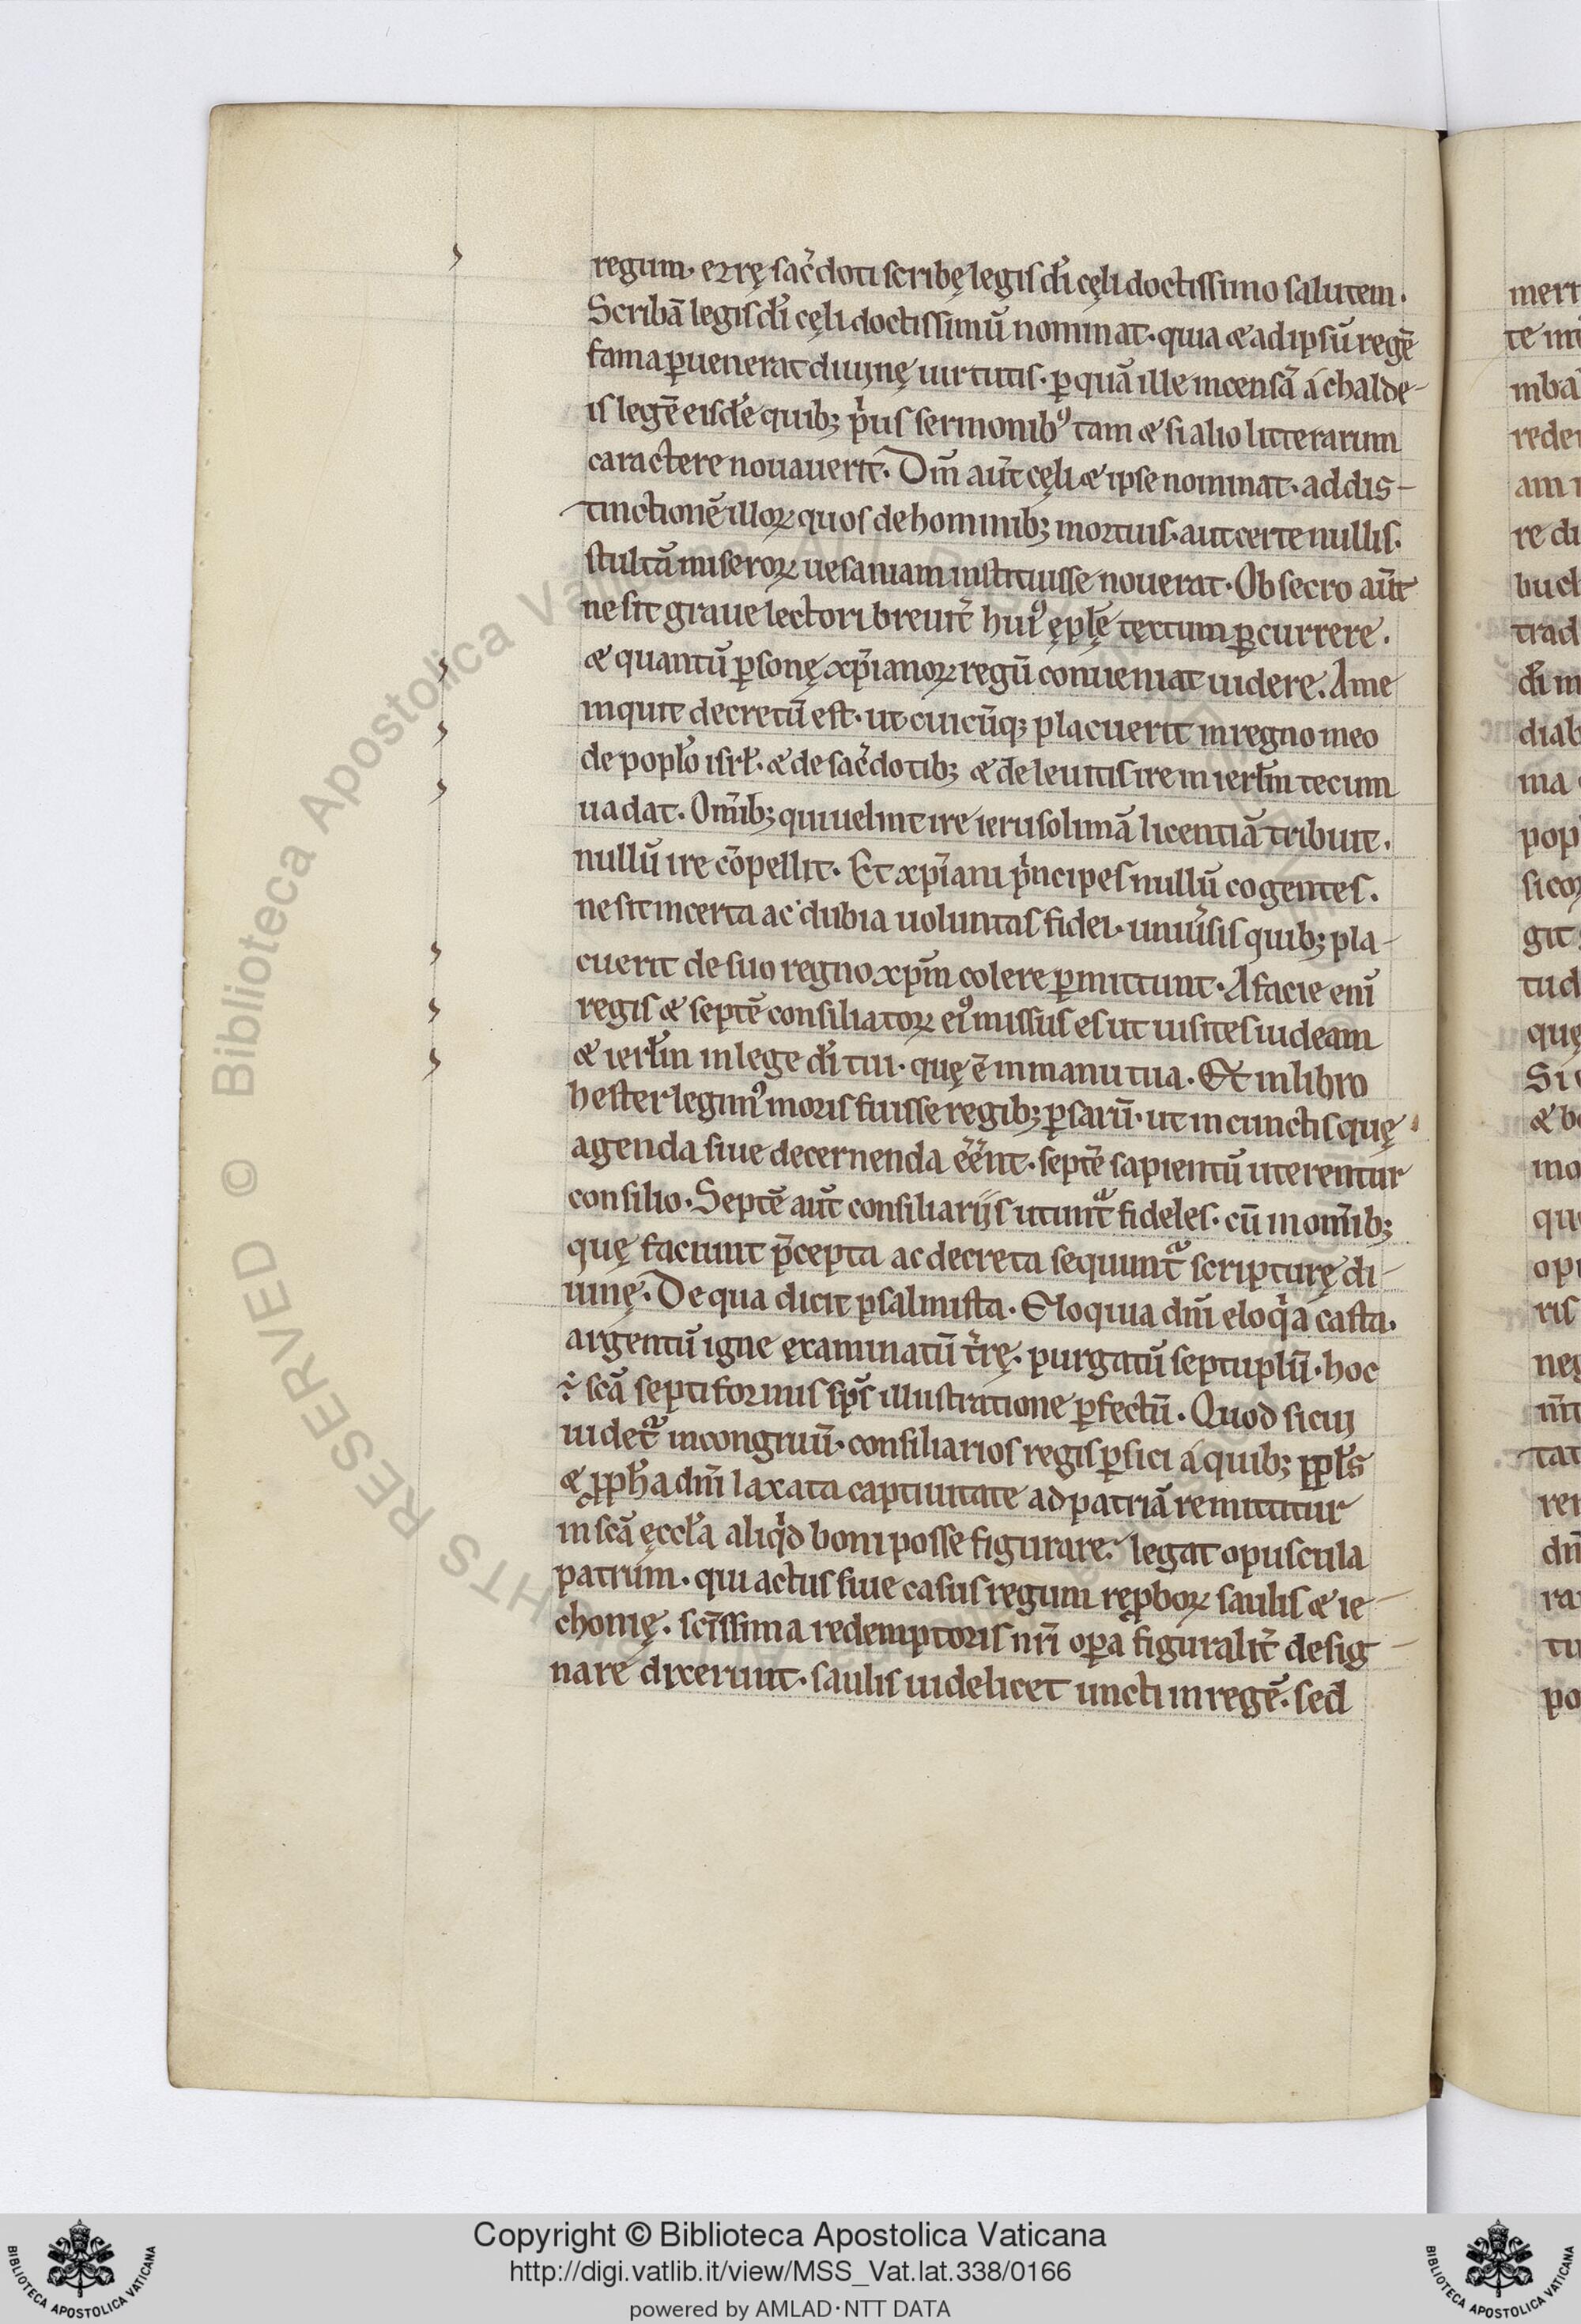 regum· ezrę sac̉doti scribę legis dī cęli doctissimo salutem·
Scribā legis dī cęli doctissimū nominat· quia & ad ipsū regē
fama ꝑuenerat diuynę uirtutis· ꝑ quā ille incensā a chalde-
is legē eisdē quibꝫ p̉us sermonibꝰ tam & si alio litterarum
caractere nouauerit· Dm̄ aūt cęli & ipse nominat· ad dis-
tinctionē illoꝝ quos de hominibꝫ mortuis· aut certe nullis·
stultā miseroꝝ uesaniam instituisse nouerat· Obsecro aūt
ne sit graue lectori breuit̉ huiꝰ ęplę tęxtum ꝑcurrere·
& quantū ꝑsonę xp̄ianoꝝ regū conueniat uidere. A me
inquit decretū est· ut cuicūqꝫ placuerit in regno meo
de poplo isrl̄· & de sac̉dotibꝫ & de leuitis ire in ierl̄m tecum
uadat· Om̄ibꝫ qui uelint ire ierusolimā licentiā tribuit·
nullū ire cōpellit· Et xp̄iani p̉ncipes nullū cogentes·
ne sit incerta ac dubia uoluntas fidei· uniủsis quibꝫ pla-
cuerit de suo regno xp̄m colere ꝑmittunt· A facie enī
regis & septē consiliatoꝝ eiꝰ missus es ut uisites iudeam
& ierl̄m in lege dī tui· quę ē in manu tua· Et in libro
hester legimꝰ moris fuisse regibꝫ ꝑsarū· ut in cunctis quę
agenda siue decernenda ēēnt· septē sapientū uterentur
consilio· Septē aūt consiliarijs utunt᷑ fideles· cū in om̄ibꝫ
quę faciunt p̄cepta ac decreta sequunt᷑ scripturę di-
uinę· De qua dicit psalmista· Eloquia dnī eloq̉a casta·
argentū igne ęxaminatū t̉rę· purgatū septuplū· hoc
÷ scā septiformis sp̄s illustratione ꝑfectū· Quod si cui
uidet᷑ incongruū· consiliarios regis ꝑsici a quibꝫ ppl̄s
& ꝓph̄a dnī laxata captiuitate ad patriā remittitur
in scā ęccl̄a aliq̉d boni posse figurare· legat opuscula
patrum· qui actus siue casus regum ręꝓboꝝ saulis & ie-
chonię· scīssima redemptoris nrī oꝑa figuralit̉ desig-
nare dixerunt· saulis uidelicet uncti in regē· sed
Copyright © Biblioteca Apostolica Vaticana
http://digi.vatlib.it/view/MSS_Vat.lat.338/0166
powered by AMLAD·NTT DATA